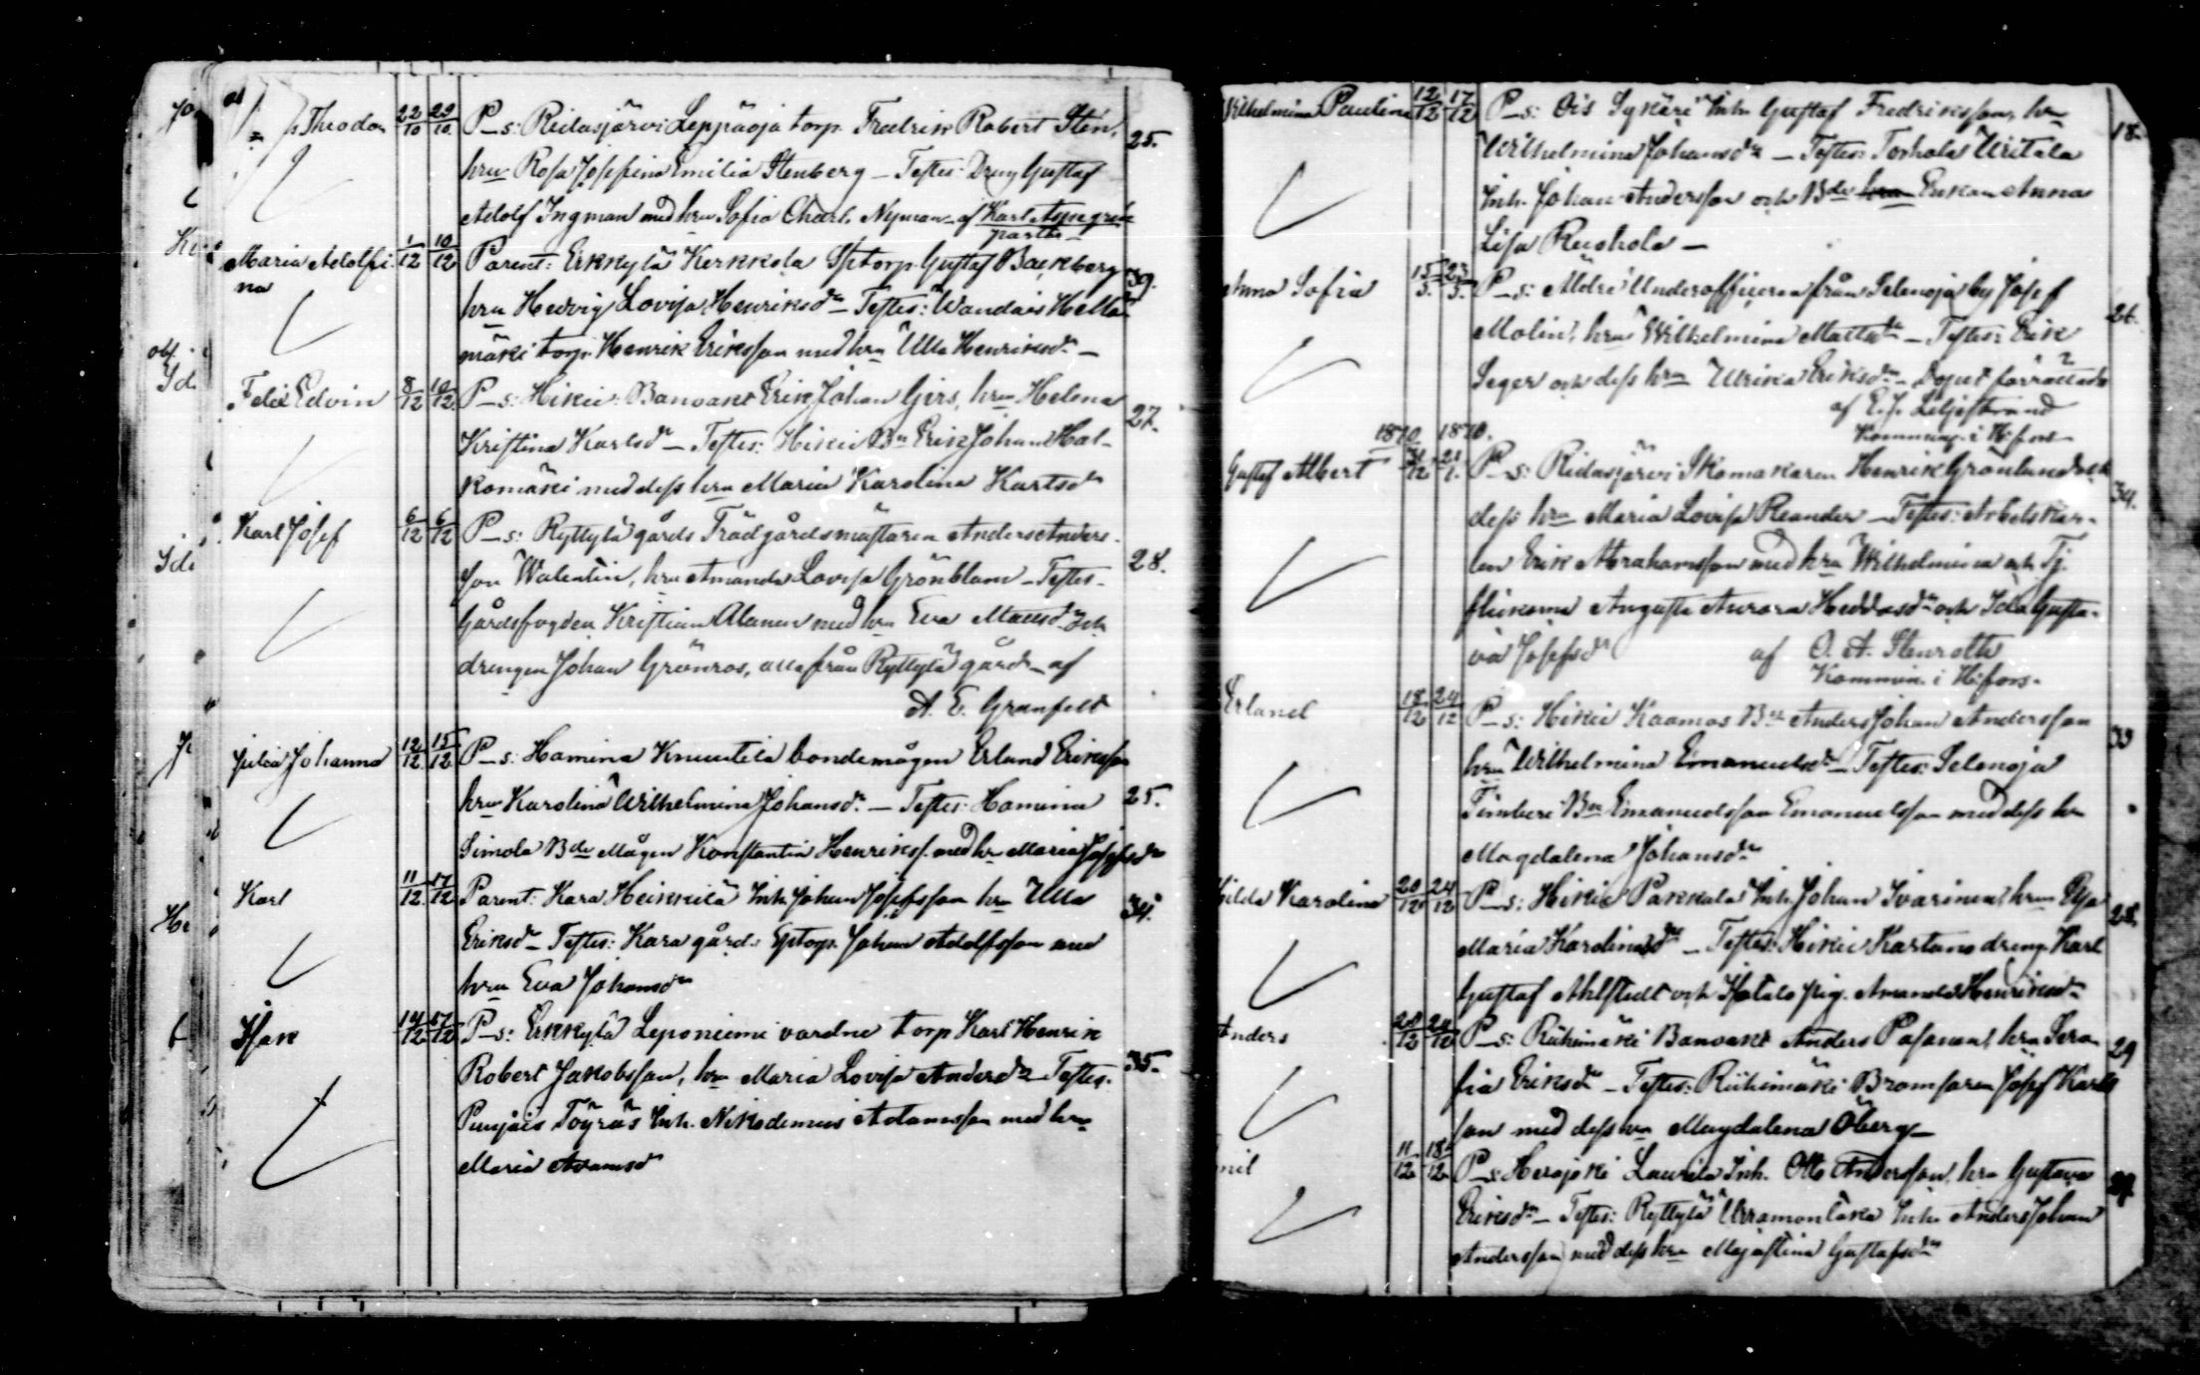 Theodor 22/10 23/10 P_s: Ridasjärvi Leppäoja torp. Fredrik Robert Sten, 25.
hru Rosa Josefina Emilia Stenberg – Testes: Dreng Gustaf
Adolf Ingman med hru Sofia Charl. Nyman – af Karl
Maria Adolfi- 1/12 10/12 Parent: Erkkylä Kerkkola Sptorp. Gustaf Backberg 39.
na
hru Hedvig Lovisa Henriksdr – Testes: Wandais Hella-
mäki torp. Henrik Eriksson med hru Ulla Henriksdr –
Felix Edvin 8/12 10/12 P_s: Hikiä: Banvakt Erik Johan Girs, hru Helena 27.
Kristina Karlsdr – Testes: Hikiä Bn Erik Johan Hal-
komäki med dess hru Maria Karolina Karlsdr
Karl Josef 6/12 6/12 P_s: Ryttylä gårds Trädgårdsmästaren Anders Anders- 28.
son Walentin, hru Amanda Lovisa Grönblom – Testes:
Gårdsfogden Kristian Alanen med hru Eva Mattsdr och
drengen Johan Grönros, alla från Ryttylä gård – af
A. E. Granfelt
Julia Johanna 12/12 15/12 P_s: Hamina Knuutila bondemågen Erland Eriksson 25.
hru Karolina Wilhelmina Johansdr – Testes: Hamina
Simola Bde Mågen Konstantin Henrikss. med hru Maria Josefsdr
Karl 11/12 17/12 Parent: Kara Heikkilä Inh. Johan Josefsson hru Ulla 34.
Eriksdr – Testes: Kara gårds Sptorp. Johan Adolfsson med
hru Eva Johansdr
Isak 14/12 17/12 P_s: Erkkylä Leponiemi vardne torp Karl Henrik 35.
Robert Jakobsson, hru Maria Lovisa Andersdr – Testes:
Punjois Töyräs Inh. Nikodemus Adamsson med hru
Maria Adamsdr
Wilhelmina Paulina 12/12 17/12 P_s: Ois Sykäri Inh. Gustaf Fredriksson, hru 18.
Wilhelmina Johansdr – Testes: Torhola Uitala
Inh. Johan Andersson och Bde hru Enkan Anna
Lisa Ruohola –
Anna Sofia 15/5 23/5 P_s: Äldre Underofficeren från Selenoja by Josef 26.
Molin, hru Wilhelmina Mattsdr – Testes: Erik
Seger och dess hru Ulrika Eriksdr – Dopet förrättade
af E. J. Liljestrand
Kommin. i H:fors
1870 1870.
Gustaf Albert 31/12 21/1 P_s: Ridasjärvi Skomakaren Henrik Grönlund och 34.
dess hru Maria Lovisa Reander – Testes: Arbetskar-
len Erik Abrahamsson med hru Wilhelmina och Tj.
flickorna Augusta Aurora Heddasdr och Ida Gusta-
va Josefsdr af O. A. Stenroth
Kommin. i H:fors.
Erland 18/12 24/12 P_s: Hikiä Kaamos Bn Anders Johan Andersson 33
hru Wilhelmina Emanuelsdr – Testes: Selenoja
Timberi Bn Emanuelsson Emanuelsson med dess hru
Magdalena Johansdr
Hilda Karolina 20/12 24/12 P_s: Hikiä Pakkala Inh. Johan Ivarinen, hru Eva 28.
Maria Karolinasdr – Testes: Hikiä Kartano dreng Karl
Gustaf Ahlstedt och Isotalo pig. Amanda Henriksdr
Anders 20/12 24/12 P_s: Riihimäki Banvakt Anders Pasanen, hru Sera- 29
fia Eriksdr – Testes: Riihimäki Bromsaren Josef Karls-
son med dess hru Magdalena Öberg –
11/12 18/12 P_s: Herajoki Laurila Inh. Otto Andersson, hru Gustava 29.
Eriksdr – Testes: Ryttylä Uramonlaka Inh. Anders Johan
Andersson med dess hru Majastina Gustafsdr